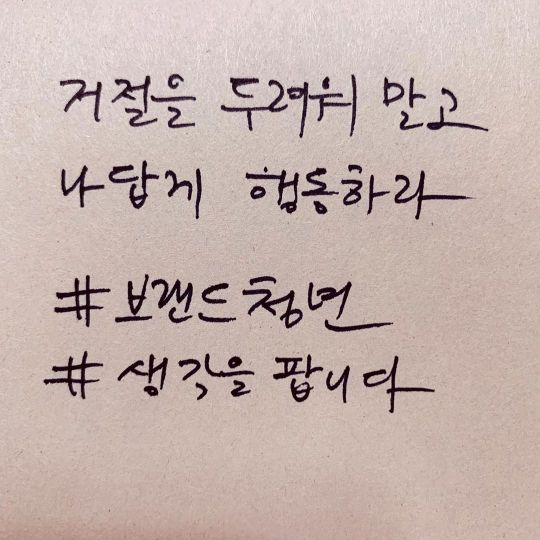 거절을 두려워 말고
나답게 행동하라
#브랜드청년
#생각을 팝니다